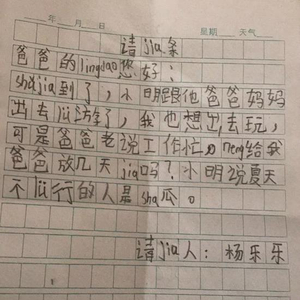 年 月 日 星期 天气
请jia条
爸爸的lingdao您好：
shǔjia到了，小明跟他爸爸妈妈
出去lǚ游了，我也想出去玩，
可是爸爸老说工作忙，neng给我
爸爸放几天jia吗？小明说夏天
不lǚ行的人是sha瓜。
请jia人：杨乐乐